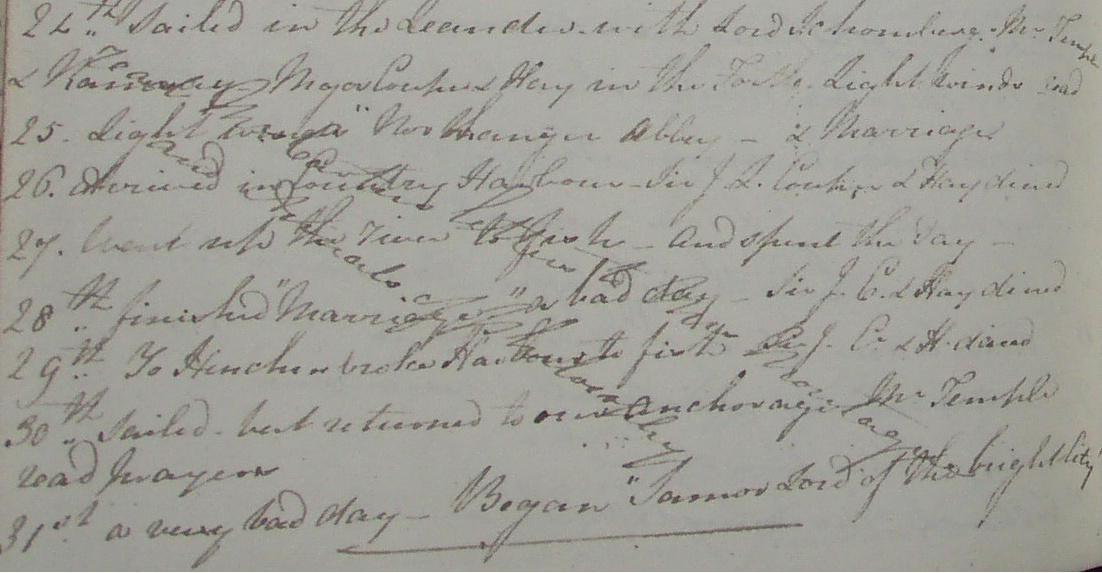 24th Sailed in the Leander with Lord Schomberg. Mr Temple
& Major Couper & Hay in the Forte. Light Winds read
25. Light "Northanger Abbey - & Marriage
26. Arrived in Country Harbour - Sir J. L. Couper & Hay dined
27. Went up the river to fish - and spent the Day -
28th finished "Marriage" a bad day - Sir J. C. & Hay dined
29th To Hinchinbroke Harbour to fish Sir J. C. & H. dined
30th Sailed - but returned to our anchorage Mr Temple
read prayers
31st a very bad day - Began "Samor Lord of the bright City"